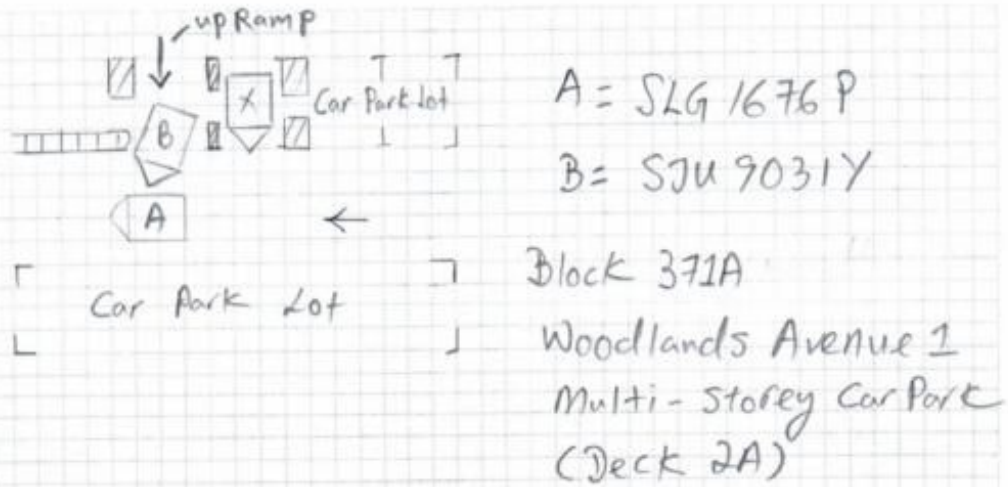 up Ramp
X
Car Park Lot
B
A
Car Park Lot
A = SLG 1676 P
B = SJU 9031Y
Block 371A
Woodlands Avenue 1
Multi-Storey Car Park
(Deck 2A)